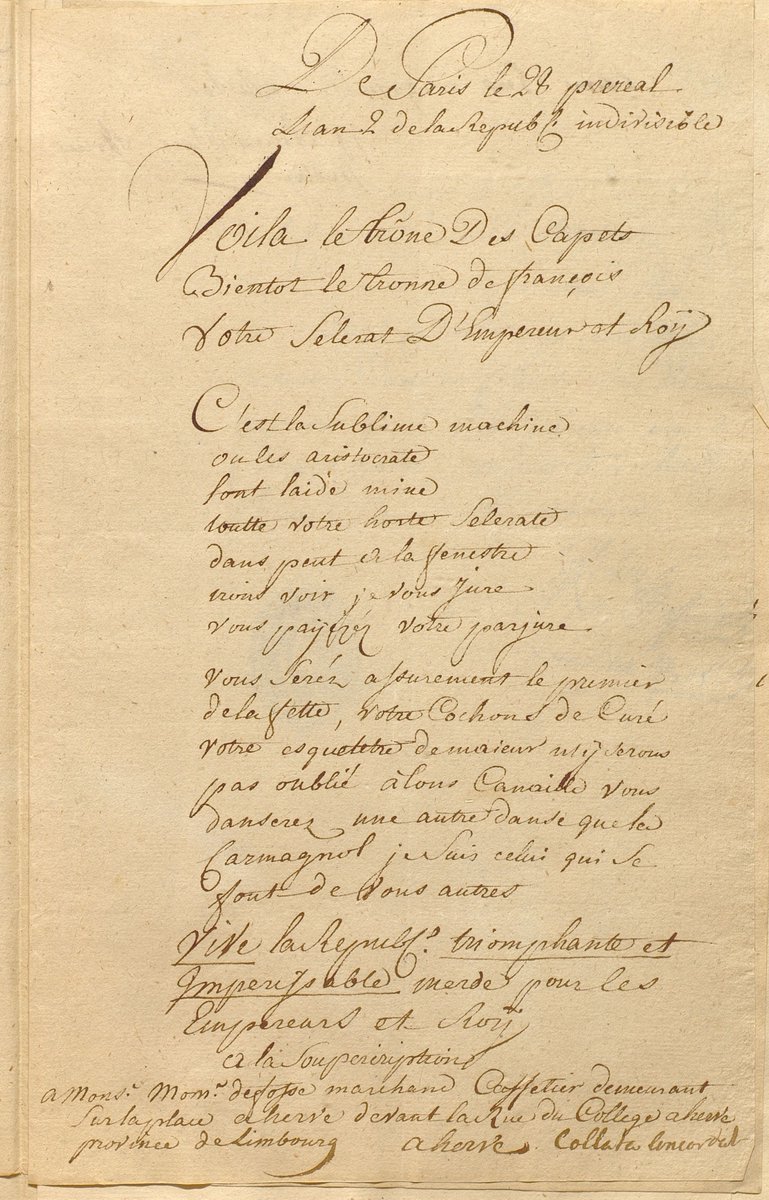 De Paris le 28 prereal
Lian 2 de la Republ. indivisible
Voila le trône Des Capets
Bientot le tronne de françois
Votre Selerat D'Empereur et Roÿ
C'est la Sublime machine
ou les aristocrate
font laide mine
toutte votre horte Selerate
dans peut a la fenestre
irons voir je vous Jure
vous payerez votre parjure
vous Seréz assurement le premier
de la fette, votre Cochons de Curé
votre esqueletre de maieur nÿ serons
pas oublié âlons Canaille vous
danserez une autre danse que la
Carmagnol je suis celui qui se
fout de vous autres
Vive la Republ. triomphante et
Imperissable merde pour les
Empereurs et Roÿ
a la Souperscription
a Mons.r Mons.r defosse marchand Caffetier demeurant
Sur la place a herve devant la Rue du College a herve
province de Limbourg a herve. Collata Concordat